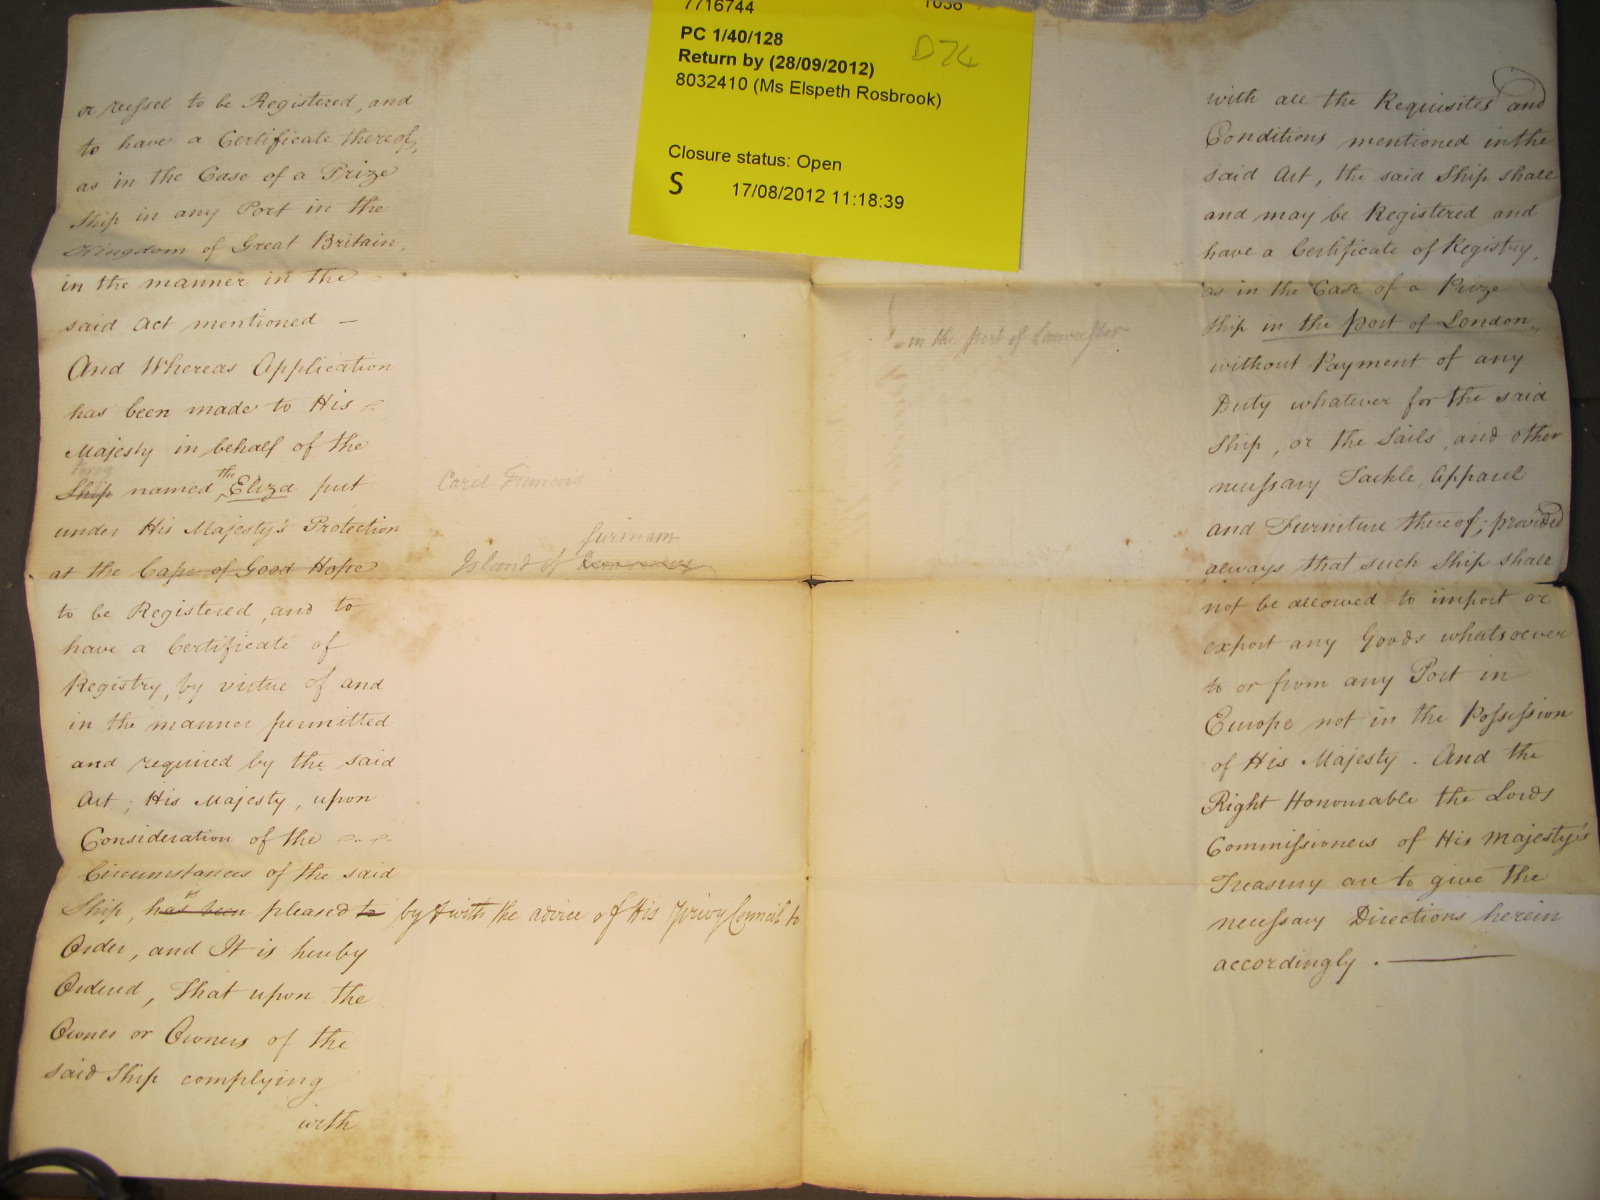 7716744 1036
PC 1/40/128
D74
Return by (28/09/2012)
8032410 (Ms Elspeth Rosbrook)
Closure status: Open
S 17/08/2012 11:18:39
or vessel to be Registered, and
to have a Certificate thereof,
as in the Case of a Prize
Ship in any Port in the
Kingdom of Great Britain,
in the manner in the
said Act mentioned —
And Whereas Application
has been made to His
Majesty in behalf of the
Brig
Ship named the Eliza put
Carel Francois
under His Majesty's Protection
at the Cape of Good Hope
Surinam
Island of
to be Registered, and to
have a Certificate of
Registry, by virtue of and
in the manner permitted
and required by the said
Act; His Majesty, upon
Consideration of the
Circumstances of the said
Ship, has been is pleased to by & with the advice of His Privy Council to
Order, and It is hereby
Ordered, That upon the
Owner or Owners of the
said Ship complying
with
with all the Requisites and
Conditions mentioned in the
said Act, the said Ship shall
and may be Registered and
have a Certificate of Registry,
as in the Case of a Prize
Ship in the port of London,
in the port of Lancaster
without Payment of any
Duty whatever for the said
Ship, or the Sails, and other
necessary Tackle, Apparel
and Furniture thereof; provided
always that such Ship shall
not be allowed to import or
export any Goods whatsoever
to or from any Port in
Europe not in the Possession
of His Majesty. And the
Right Honourable the Lords
Commissioners of His Majesty's
Treasury are to give the
necessary Directions herein
accordingly. —